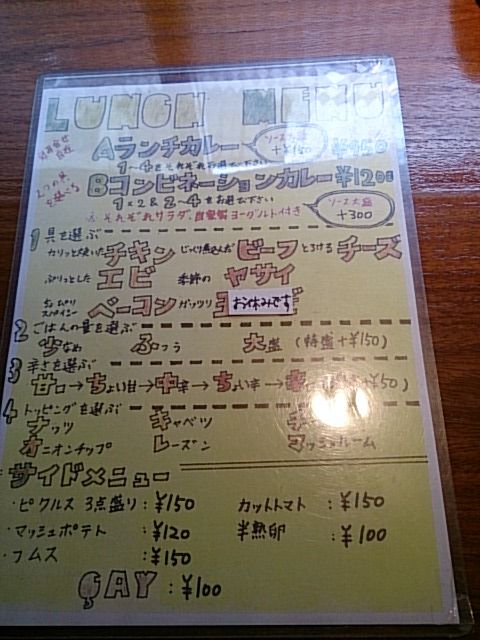 LUNCH MENU
Aランチカレー
1~4をそれぞれお選び下さい
2つの味を選べる
Bコンビネーションカレー ¥1200
1×2 & 2~4をお選び下さい
ソース大盛 +300
それぞれサラダ、自家製ヨーグルト付き
1 具を選ぶ
カリッと焼いたチキン じっくり煮込んだビーフ とろけるチーズ
ぷりっとしたエビ 季節のヤサイ
ちょっぴりスパイシー ベーコン ガッツリ お休みです
2 ごはんの量を選ぶ
少なめ ふつう 大盛(特盛+¥150)
3 辛さを選ぶ
甘口→ちょい甘→中辛→ちょい辛→ +50)
4 トッピングを選ぶ
ナッツ キャベツ
オニオンチップ レーズン マッシュルーム
サイドメニュー
・ピクルス3点盛り:¥150 カットトマト:¥150
・マッシュポテト:¥120 半熟卵:¥100
・フムス:¥150
ÇAY:¥100